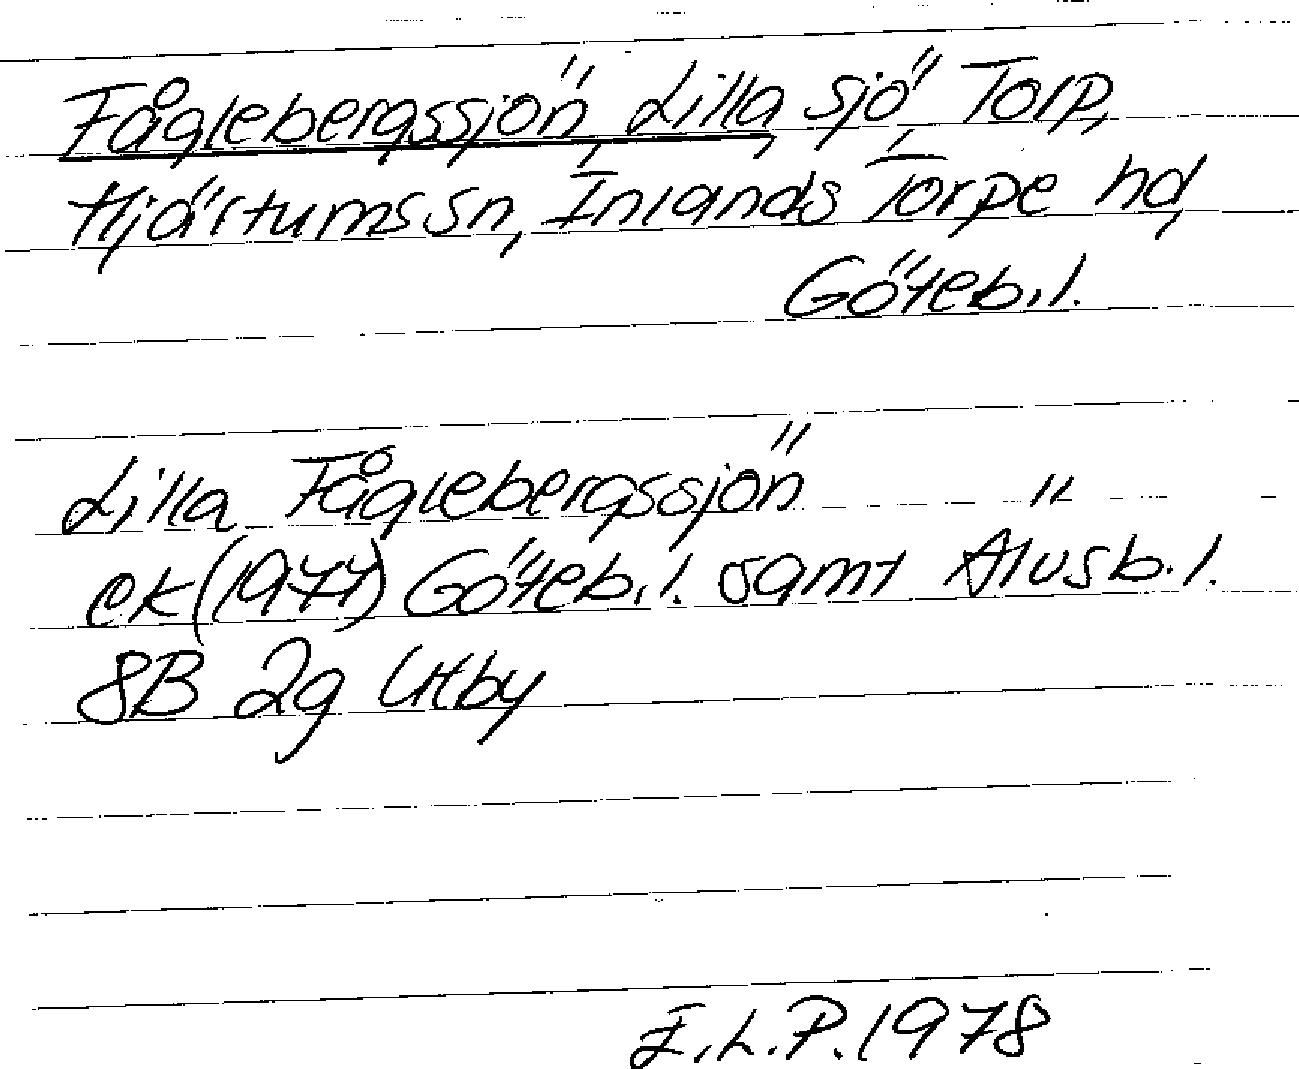 Fåglebergssjön, Lilla, sjö, Torp,
Hjärtums sn, Inlands Torpe hd,
Göteb.l.
Lilla Fåglebergssjön "
ek (1977) Göteb.l. samt Älvsb.l.
8B 2g Utby
E.L.P. 1978